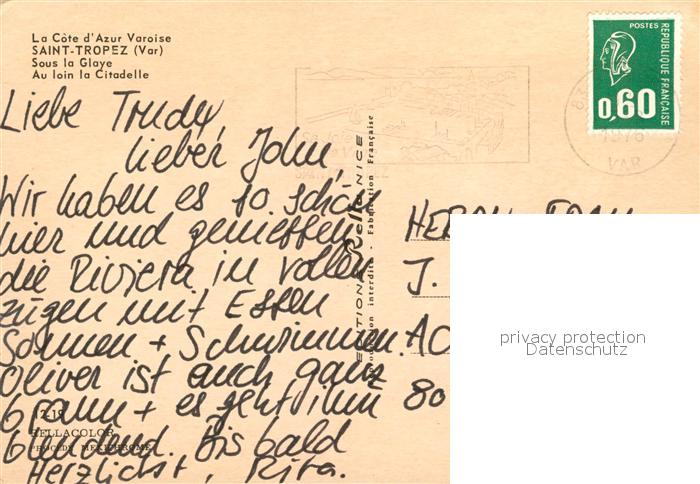 La Côte d'Azur Varoise
SAINT-TROPEZ (Var)
Sous la Glaye
Au loin la Citadelle
Liebe Trudy,
lieber John,
Wir haben es so schön
hier und geniessen
die Riviera in vollen
Zügen mit Essen
Sonnen + Schwimmen.
Oliver ist auch ganz
braun + es geht ihm
blendend. Bis bald
Herzlichst, Rita.
BELLACOLOR
PROCÉDÉ MEXICHROME
NICE
interdite - Fabrication Française
POSTES
REPUBLIQUE FRANÇAISE
0,60
83
1976
VAR
J.
80
privacy protection
Datenschutz